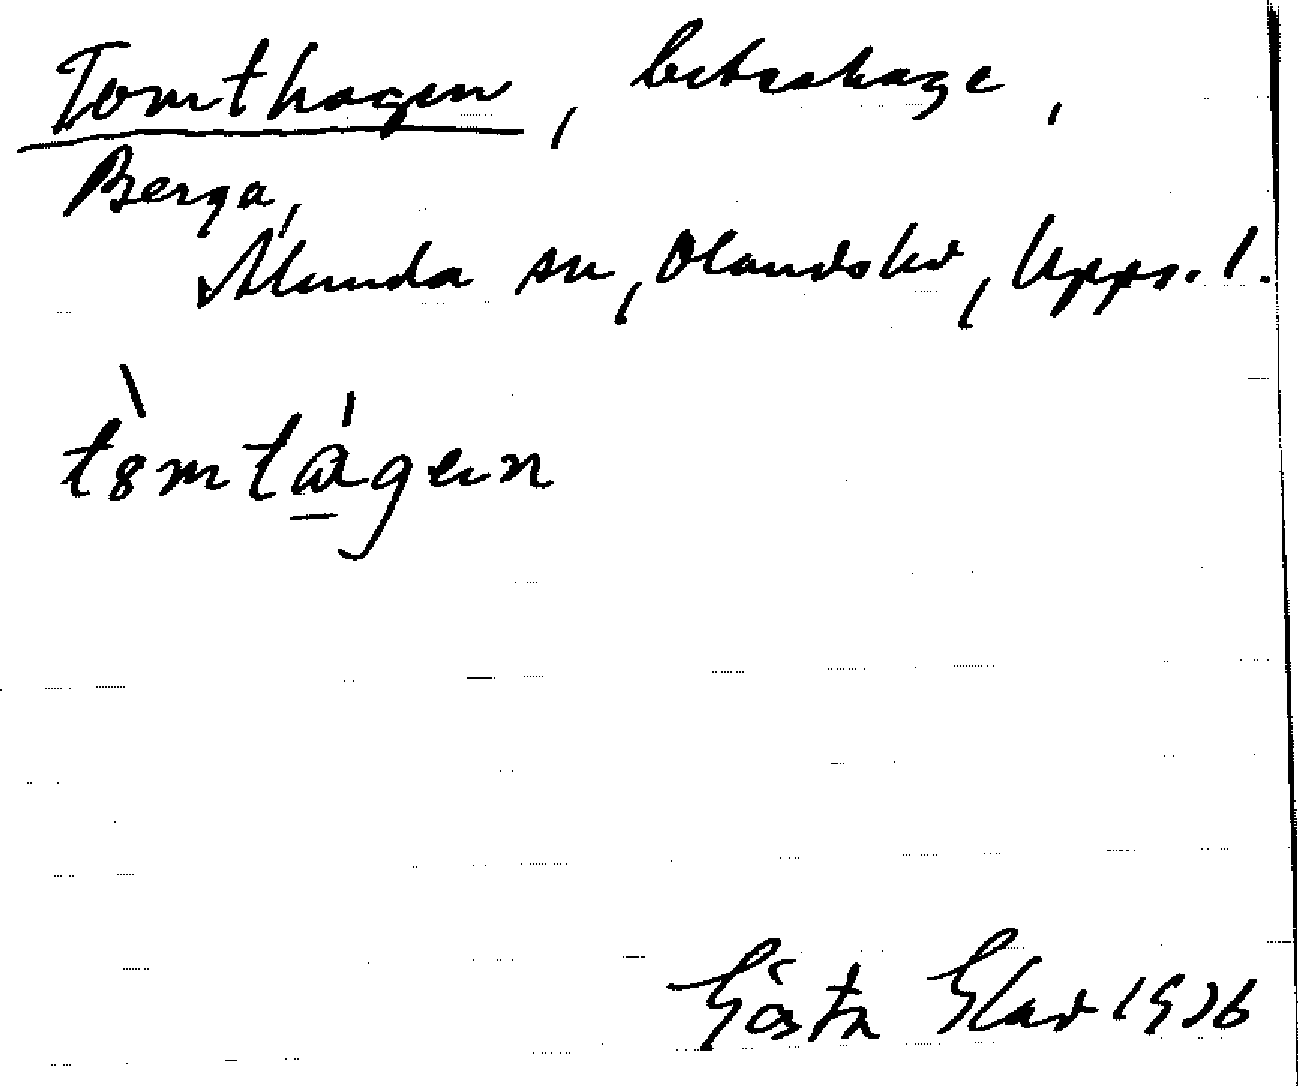 Tomthagen, beteshage,
Berga,
Alunda sn, Olands hd, Upps. l.
tòmtágen
Gösta Glad 1936